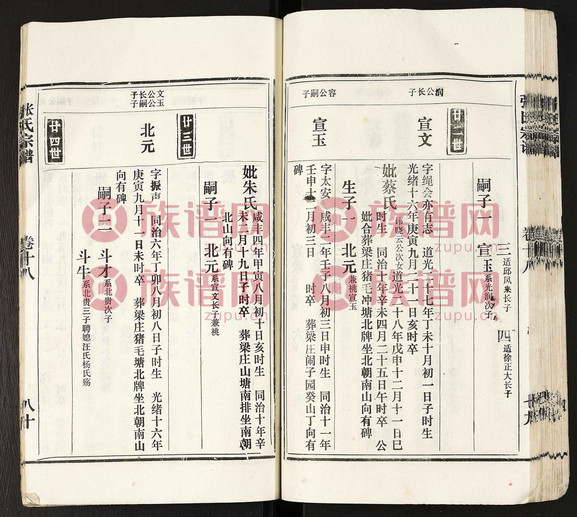 三 适邱凤来长子 四 适徐正大长子
嗣子一 宣玉 系光润次子
廿二世
润公长子
宣文
字绳会 亦有志 道光二十七年丁未十月初一日子时生
光绪十六年庚寅九月二十一日亥时卒
妣蔡氏 晓云公次女 道光二十八年戊申十二月十一日巳
时生 同治十年辛未四月二十五日午时卒 公
妣合葬梁庄猪毛冲塘北牌坐北朝南山向有碑
生子一 北元 兼祧宣玉
容公嗣子
宣玉
字太安 咸丰二年壬子八月初三日申时生 同治十一年
壬申十二月初三日 时卒 葬梁庄闹子园癸山丁向有
碑
妣朱氏 咸丰四年甲寅八月初十日亥时生 同治十年辛
未二月十九日子时卒 葬梁庄山塘南排坐南朝
北山向有碑
嗣子一 北元 系宣文长子兼祧
廿三世
文公长子
玉公嗣子
北元
字振声 同治六年丁卯八月初八日子时生 光绪十六年
庚寅九月十一日未时卒 葬梁庄猪毛塘北牌坐北朝南山
向有碑
嗣子二 斗才 系北贵次子
斗牛 系北贵三子聘媳汪氏杨氏殇
廿四世
张氏宗谱
卷十八
八十
族谱网
zupu.cn